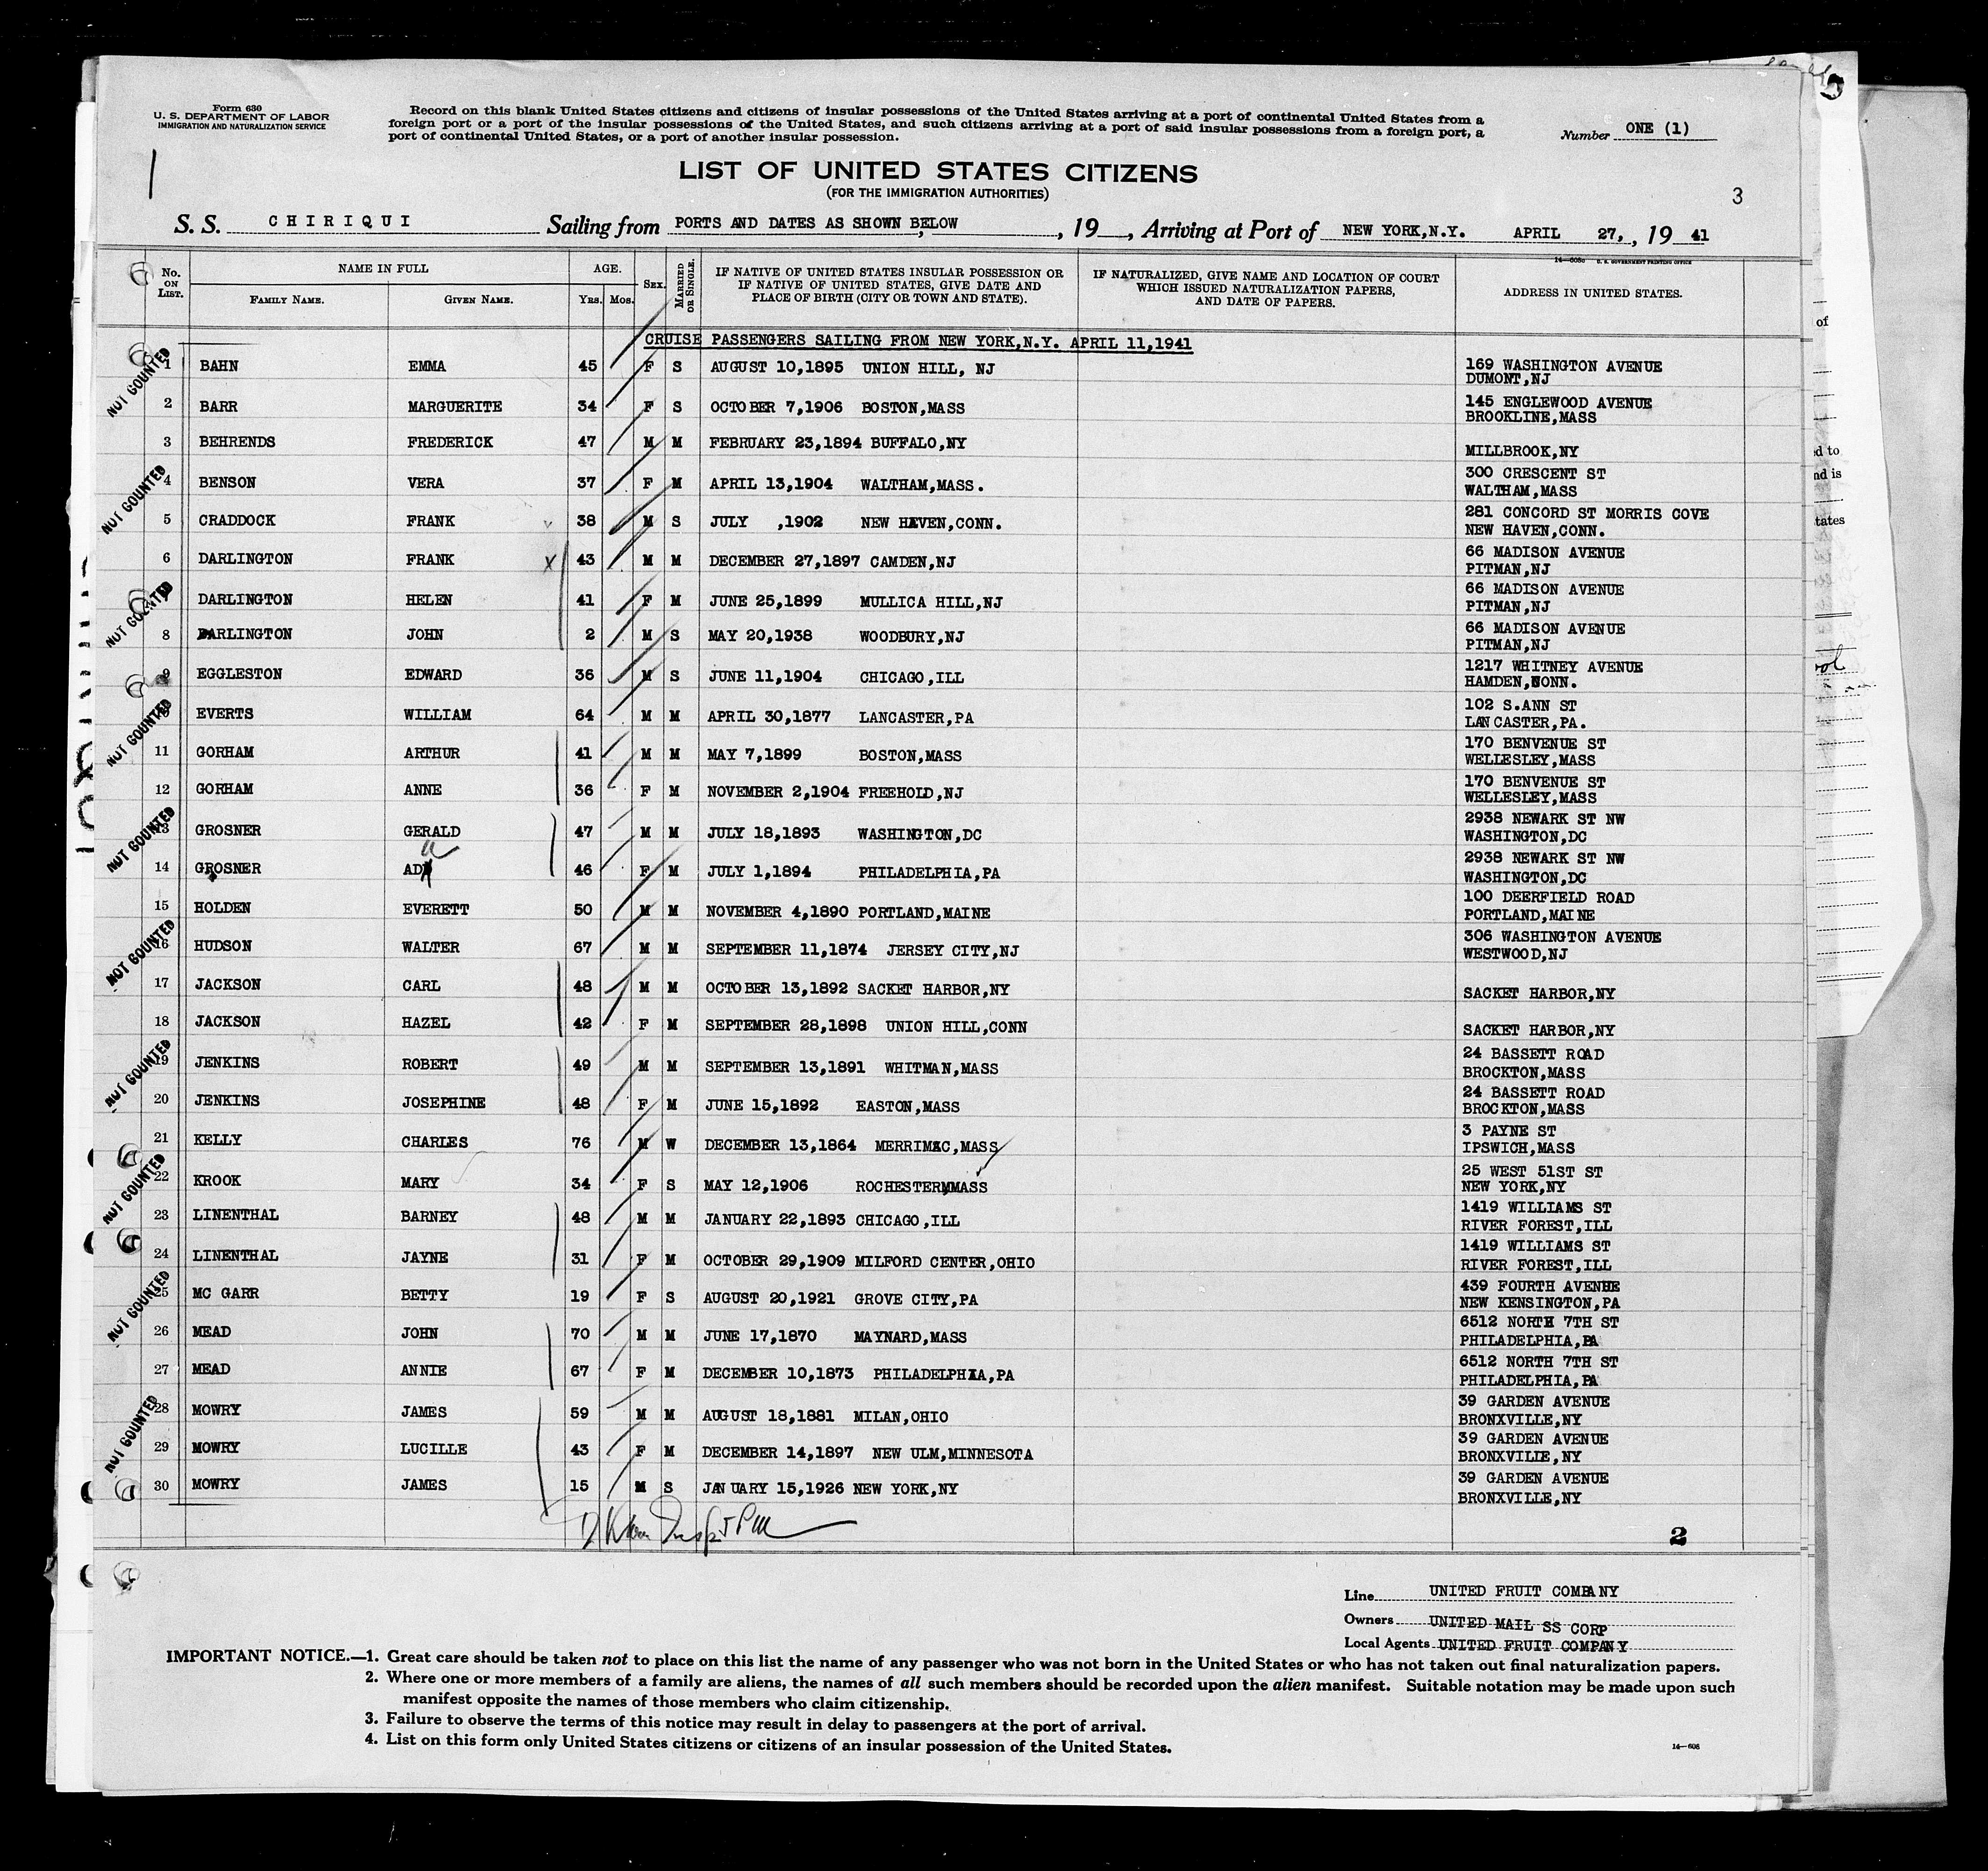 Form 630
U. S. DEPARTMENT OF LABOR
IMMIGRATION AND NATURALIZATION SERVICE
Record on this blank United States citizens and citizens of insular possessions of the United States arriving at a port of continental United States from a
foreign port or a port of the insular possessions of the United States, and such citizens arriving at a port of said insular possessions from a foreign port, a
port of continental United States, or a port of another insular possession.
Number ONE (1)
LIST OF UNITED STATES CITIZENS
(FOR THE IMMIGRATION AUTHORITIES)
3
S. S. CHIRIQUI Sailing from PORTS AND DATES AS SHOWN BELOW, 19 , Arriving at Port of NEW YORK,N.Y. APRIL 27, , 19 41
14—608a U. S. GOVERNMENT PRINTING OFFICE
No. ON LIST. NAME IN FULL AGE. SEX. MARRIED OR SINGLE. IF NATIVE OF UNITED STATES INSULAR POSSESSION OR IF NATIVE OF UNITED STATES, GIVE DATE AND PLACE OF BIRTH (CITY OR TOWN AND STATE). IF NATURALIZED, GIVE NAME AND LOCATION OF COURT WHICH ISSUED NATURALIZATION PAPERS, AND DATE OF PAPERS. ADDRESS IN UNITED STATES.
FAMILY NAME. GIVEN NAME. YRS. MOS.
CRUISE PASSENGERS SAILING FROM NEW YORK,N.Y. APRIL 11,1941
1 BAHN EMMA 45 F S AUGUST 10,1895 UNION HILL, NJ 169 WASHINGTON AVENUE
DUMONT,NJ
NOT COUNTED
2 BARR MARGUERITE 34 F S OCTOBER 7,1906 BOSTON,MASS 145 ENGLEWOOD AVENUE
BROOKLINE,MASS
3 BEHRENDS FREDERICK 47 M M FEBRUARY 23,1894 BUFFALO,NY
MILLBROOK,NY
4 BENSON VERA 37 F M APRIL 13,1904 WALTHAM,MASS. 300 CRESCENT ST
WALTHAM,MASS
NOT COUNTED
5 CRADDOCK FRANK 38 M S JULY ,1902 NEW HAVEN,CONN. 281 CONCORD ST MORRIS COVE
NEW HAVEN,CONN.
6 DARLINGTON FRANK X 43 M M DECEMBER 27,1897 CAMDEN,NJ 66 MADISON AVENUE
PITMAN,NJ
7 DARLINGTON HELEN 41 F M JUNE 25,1899 MULLICA HILL,NJ 66 MADISON AVENUE
PITMAN,NJ
NOT COUNTED
8 DARLINGTON JOHN 2 M S MAY 20,1938 WOODBURY,NJ 66 MADISON AVENUE
PITMAN,NJ
9 EGGLESTON EDWARD 36 M S JUNE 11,1904 CHICAGO,ILL 1217 WHITNEY AVENUE
HAMDEN,CONN.
10 EVERTS WILLIAM 64 M M APRIL 30,1877 LANCASTER,PA 102 S.ANN ST
LANCASTER,PA.
NOT COUNTED
11 GORHAM ARTHUR 41 M M MAY 7,1899 BOSTON,MASS 170 BENVENUE ST
WELLESLEY,MASS
12 GORHAM ANNE 36 F M NOVEMBER 2,1904 FREEHOLD,NJ 170 BENVENUE ST
WELLESLEY,MASS
13 GROSNER GERALD 47 M M JULY 18,1893 WASHINGTON,DC 2938 NEWARK ST NW
WASHINGTON,DC
NOT COUNTED
14 GROSNER ADa 46 F M JULY 1,1894 PHILADELPHIA,PA 2938 NEWARK ST NW
WASHINGTON,DC
15 HOLDEN EVERETT 50 M M NOVEMBER 4,1890 PORTLAND,MAINE 100 DEERFIELD ROAD
PORTLAND,MAINE
16 HUDSON WALTER 67 M M SEPTEMBER 11,1874 JERSEY CITY,NJ 306 WASHINGTON AVENUE
WESTWOOD,NJ
NOT COUNTED
17 JACKSON CARL 48 M M OCTOBER 13,1892 SACKET HARBOR,NY
SACKET HARBOR,NY
18 JACKSON HAZEL 42 F M SEPTEMBER 28,1898 UNION HILL,CONN
SACKET HARBOR,NY
19 JENKINS ROBERT 49 M M SEPTEMBER 13,1891 WHITMAN,MASS 24 BASSETT ROAD
BROCKTON,MASS
NOT COUNTED
20 JENKINS JOSEPHINE 48 F M JUNE 15,1892 EASTON,MASS 24 BASSETT ROAD
BROCKTON,MASS
21 KELLY CHARLES 76 M W DECEMBER 13,1864 MERRIMAC,MASS 3 PAYNE ST
IPSWICH,MASS
22 KROOK MARY 34 F S MAY 12,1906 ROCHESTER,MASS 25 WEST 51ST ST
NEW YORK,NY
NOT COUNTED
23 LINENTHAL BARNEY 48 M M JANUARY 22,1893 CHICAGO,ILL 1419 WILLIAMS ST
RIVER FOREST,ILL
24 LINENTHAL JAYNE 31 F M OCTOBER 29,1909 MILFORD CENTER,OHIO 1419 WILLIAMS ST
RIVER FOREST,ILL
25 MC GARR BETTY 19 F S AUGUST 20,1921 GROVE CITY,PA 439 FOURTH AVENUE
NEW KENSINGTON,PA
NOT COUNTED
26 MEAD JOHN 70 M M JUNE 17,1870 MAYNARD,MASS 6512 NORTH 7TH ST
PHILADELPHIA,PA
27 MEAD ANNIE 67 F M DECEMBER 10,1873 PHILADELPHIA,PA 6512 NORTH 7TH ST
PHILADELPHIA,PA
28 MOWRY JAMES 59 M M AUGUST 18,1881 MILAN,OHIO 39 GARDEN AVENUE
BRONXVILLE,NY
NOT COUNTED
29 MOWRY LUCILLE 43 F M DECEMBER 14,1897 NEW ULM,MINNESOTA 39 GARDEN AVENUE
BRONXVILLE,NY
30 MOWRY JAMES 15 M S JANUARY 15,1926 NEW YORK,NY 39 GARDEN AVENUE
BRONXVILLE,NY
2
Line UNITED FRUIT COMPANY
Owners UNITED MAIL SS CORP
Local Agents UNITED FRUIT COMPANY
IMPORTANT NOTICE.—1. Great care should be taken not to place on this list the name of any passenger who was not born in the United States or who has not taken out final naturalization papers.
2. Where one or more members of a family are aliens, the names of all such members should be recorded upon the alien manifest. Suitable notation may be made upon such
manifest opposite the names of those members who claim citizenship.
3. Failure to observe the terms of this notice may result in delay to passengers at the port of arrival.
4. List on this form only United States citizens or citizens of an insular possession of the United States.
14—608